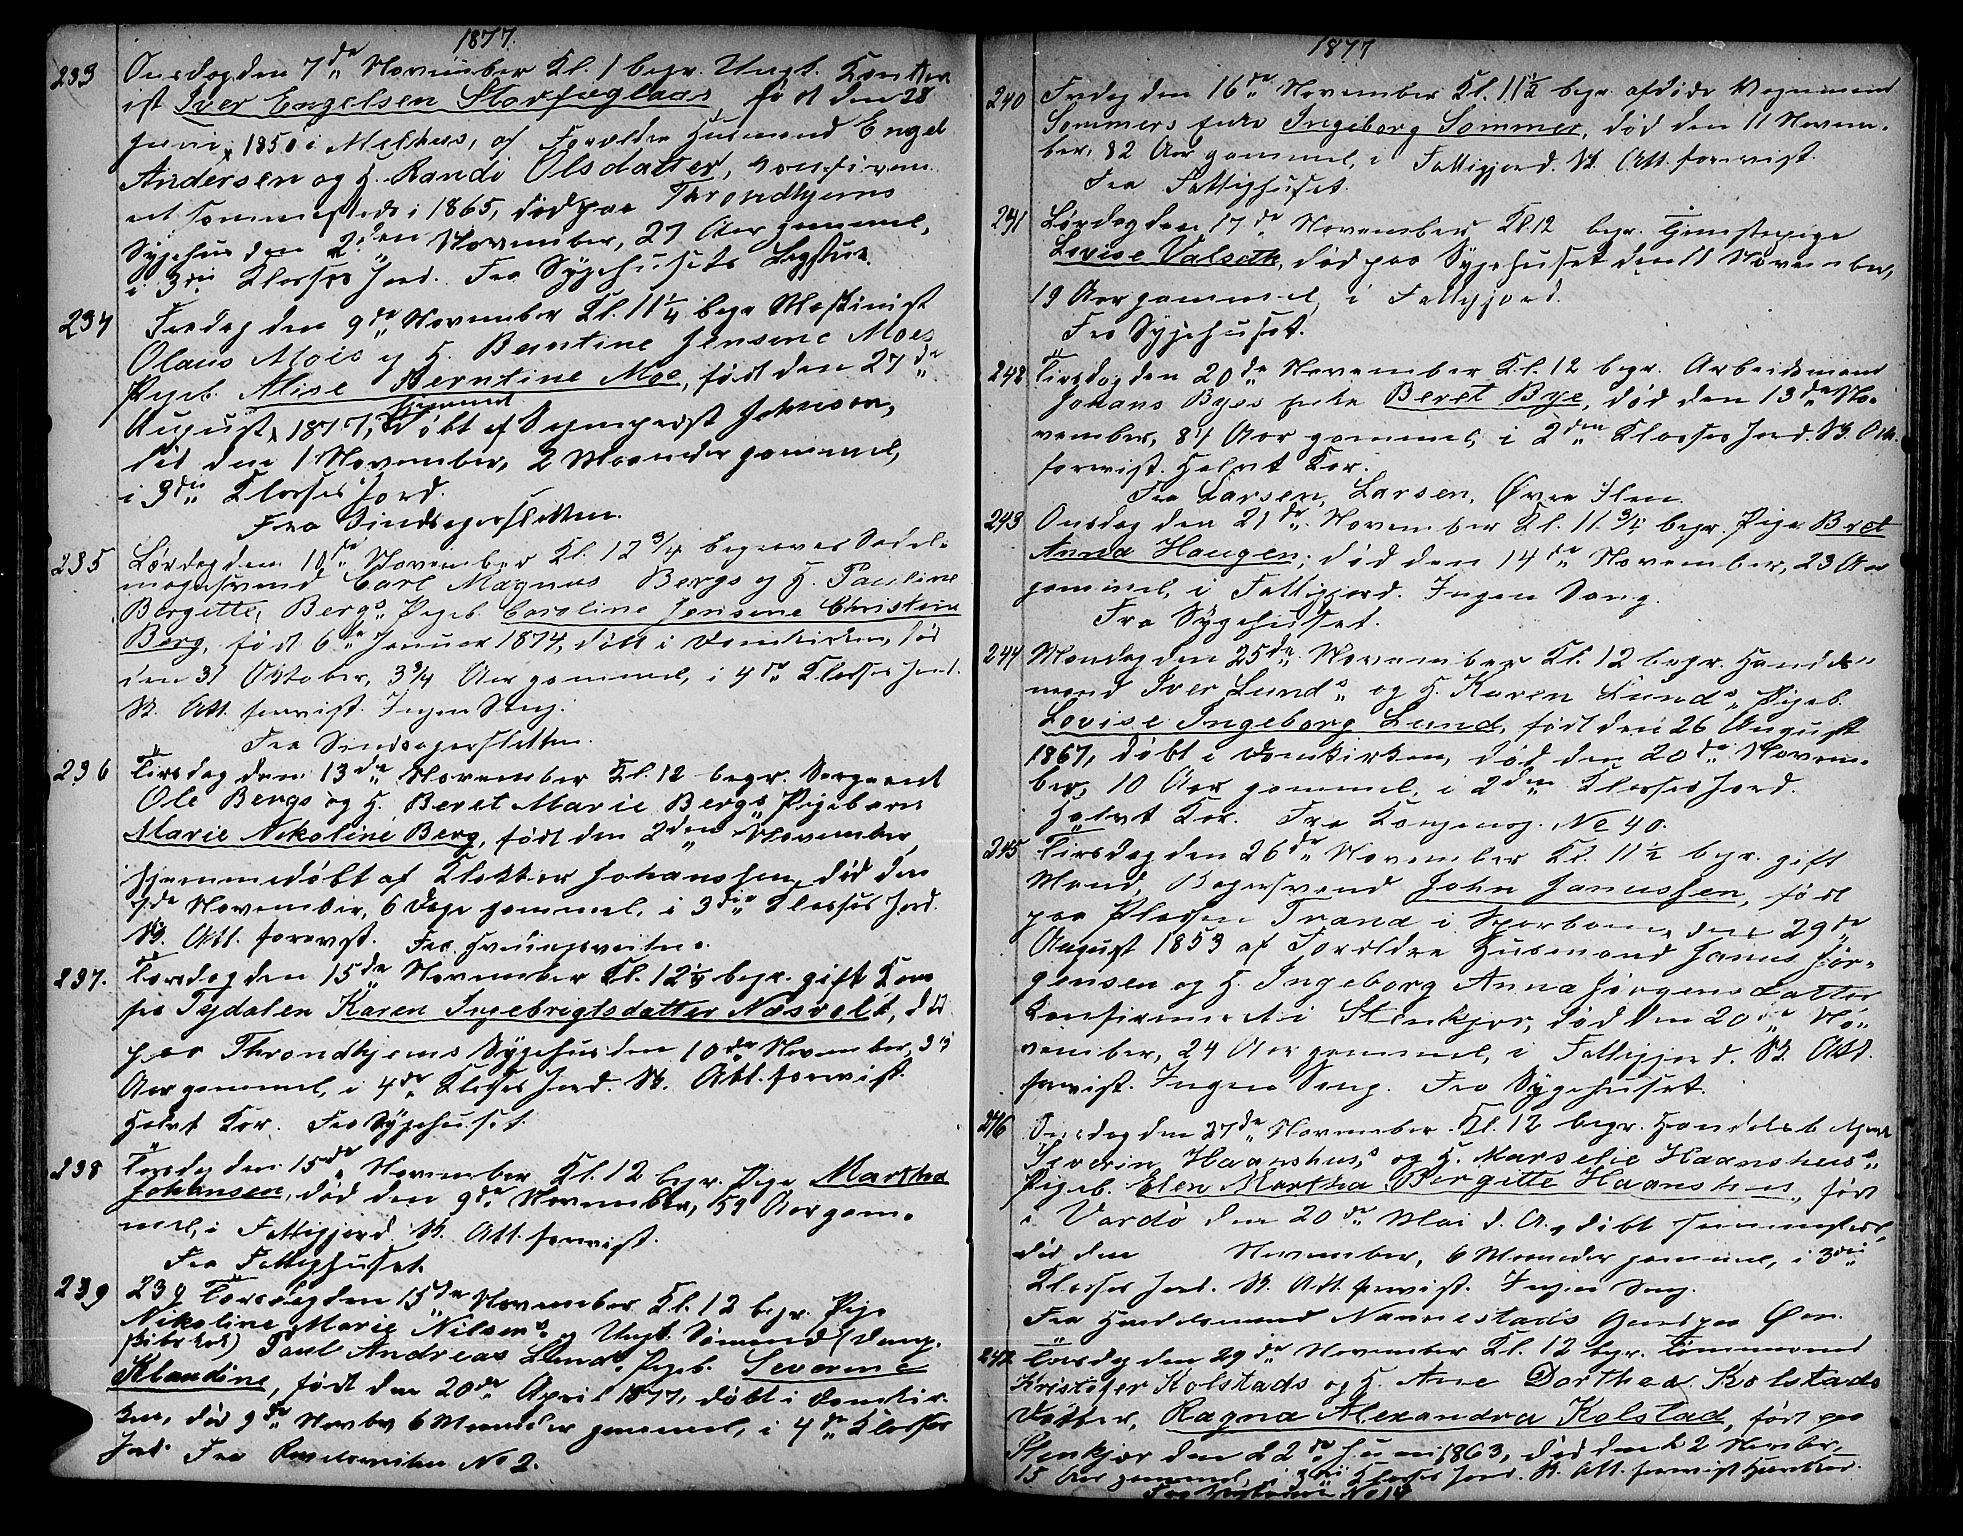 1877.
233 Onsdag den 7de November Kl. 1 begr. Ungk. Kontor
ist Iver Engelsen Storfuglaas, født den 28
Juni 1850 i Melhus, af Forældre Husmand Engel
Andersen og H. Randi Olsdatter, konfirme
ret sammesteds i 1865, død paa Throndhjems
Sygehus den 2den November, 27 Aar gammel,
i 3die Klasses Jord. Fra Sygehusets Ligstue.
234 Fredag den 9de November Kl. 11 1/4 begr. Maskinist
Olaus Moes og H. Berntine Jensine Moes
Pigeb. Alise Berntine Moe, født den 27de
August 1877, hjemmedøbt af Johnsen,
død den 1 November, 2 Maaneder gammel,
i 3die Klasses Jord.
Fra Sindsagersletten.
235 Lørdag den 10de November Kl. 12 3/4 begraves Sadel-
magersvend Carl Magnus Bergs og H. Pauline
Bergette Bergs Pigeb. Caroline Jensine Christine
Berg, født 6te Januar 1874, døbt i Domkirken, død
den 31 Oktober, 3 3/4 Aar gammel, i 4de Klasses Jord.
Sk. Att. forevist. Ingen Sang.
Fra Sindsagersletten.
236 Tirsdag den 13de November Kl. 12 begr. Sergeant
Ole Bergs og H. Beret Marie Bergs Pigebarn
Marie Nikoline Berg, født den 2den November,
hjemmedøbt af Klokker Johanssen, død den
7de November, 6 Dage gammel, i 3die Klasses Jord.
Sk. Att. forevist. Fra
237. Torsdag den 15de November Kl. 12 1/4 begr. gift Kone
fra Tydalen Karen Ingebrigtsdatter Næsvold, død
paa Throndhjems Sygehus den 10de November, 39
Aar gammel, i 4de Klasses Jord. Sk. Att. forevist.
Halvt Kor. Fra Sygehuset.
238 Torsdag den 15de November Kl. 12 begr. Pige Martha
Johansen, død den 9de November, 59 Aar gam-
mel, i Fattigjord. Sk. Att. forevist.
Fra Fattighuset.
239 239 Torsdag den 15de November Kl. 12 begr. Pige
Nikoline Marie Nilsens og Ungk. Sømand (Damp-
skibskok) Paul Andreas Lunds Pigeb. Severine
Klaudine, født den 20de April 1877, døbt i Domkir-
ken, død 9de Novbr, 6 Maaneder gammel, i 4de Klasses
Jord. Fra No 2.
1877
240 Fredag den 16de November Kl. 11 1/2 begr. afdøde Vognmand
Sommers Enke Ingeborg Sommer, død den 11 Novem-
ber, 82 Aar gammel, i Fattigjord. Sk. Att. forevist.
Fra Fattighuset.
241 Lørdag den 17de November Kl. 12 begr. Tjenestepige
Lovise Valseth, død paa Sygehuset den 11 November,
19 Aar gammel, i Fattigjord.
Fra Sygehuset.
242 Tirsdag den 20de November Kl. 12 begr. Arbeidsmand
Johans Byes Enke Beret Bye, død den 13de No-
vember, 81 Aar gammel, i 2den Klasses Jord. Sk. Att.
forevist. Halvt Kor.
Fra Larsen, Larsen, Øvre Ilen.
243 Onsdag den 21de November Kl. 11 3/4 begr. Pige Bret
Anna Haugen, død den 14de November, 23 Aar
gammel, i Fattigjord. Ingen Sang.
Fra Sygehuset.
244 Mandag den 25de November Kl. 12 begr. Handels-
mand Iver Lunds og H. Karen Lunds Pigeb.
Lovise Ingeborg Lund, født den 26 August
1867, døbt i Domkirken, død den 20de Novem-
ber, 10 Aar gammel, i 2den Klasses Jord.
Halvt Kor. Fra Kongensg. No 40.
245 Tirsdag den 26de November Kl. 11 1/2 begr. gift
Mand, Bagersvend John Janussen, født
paa Pladsen Trana i Sparboen, den 29de
August 1853 af Forældre Husmand Janus Jør-
gensen og H. Ingeborg Anna Jørgensdatter
konfirmeret i Stenkjær, død den 20de No-
vember, 24 Aar gammel, i Fattigjord. Sk. Att.
forevist. Ingen Sang. Fra Sygehuset.
246 Onsdag den 27de November Kl. 12 begr. Handelsb
Severin Haanshus's og H. Marselie Haanshus's
Pigeb. Elen Martha Birgitte Haanshus, født
i Vardö den 20de Mai d. A., døbt sammesteds,
død den November, 6 Maaneder gammel, i 3die
Klasses Jord. Sk. Att. forevist. Ingen Sang.
Fra Handelsmand Nannestads Gaard paa Øren.
247 Torsdag den 29de November Kl. 12 begr. Tømmermand
Kristofer Kolstads og H. Ane Dorthea Kolstads
Datter, Ragna Alexandra Kolstad, født paa
Stenkjær den 22de Juni 1863, død den 22 Novbr,
15 Aar gammel, i 3die Klasses Jord. Sk. Att. forevist.
Fra No 14